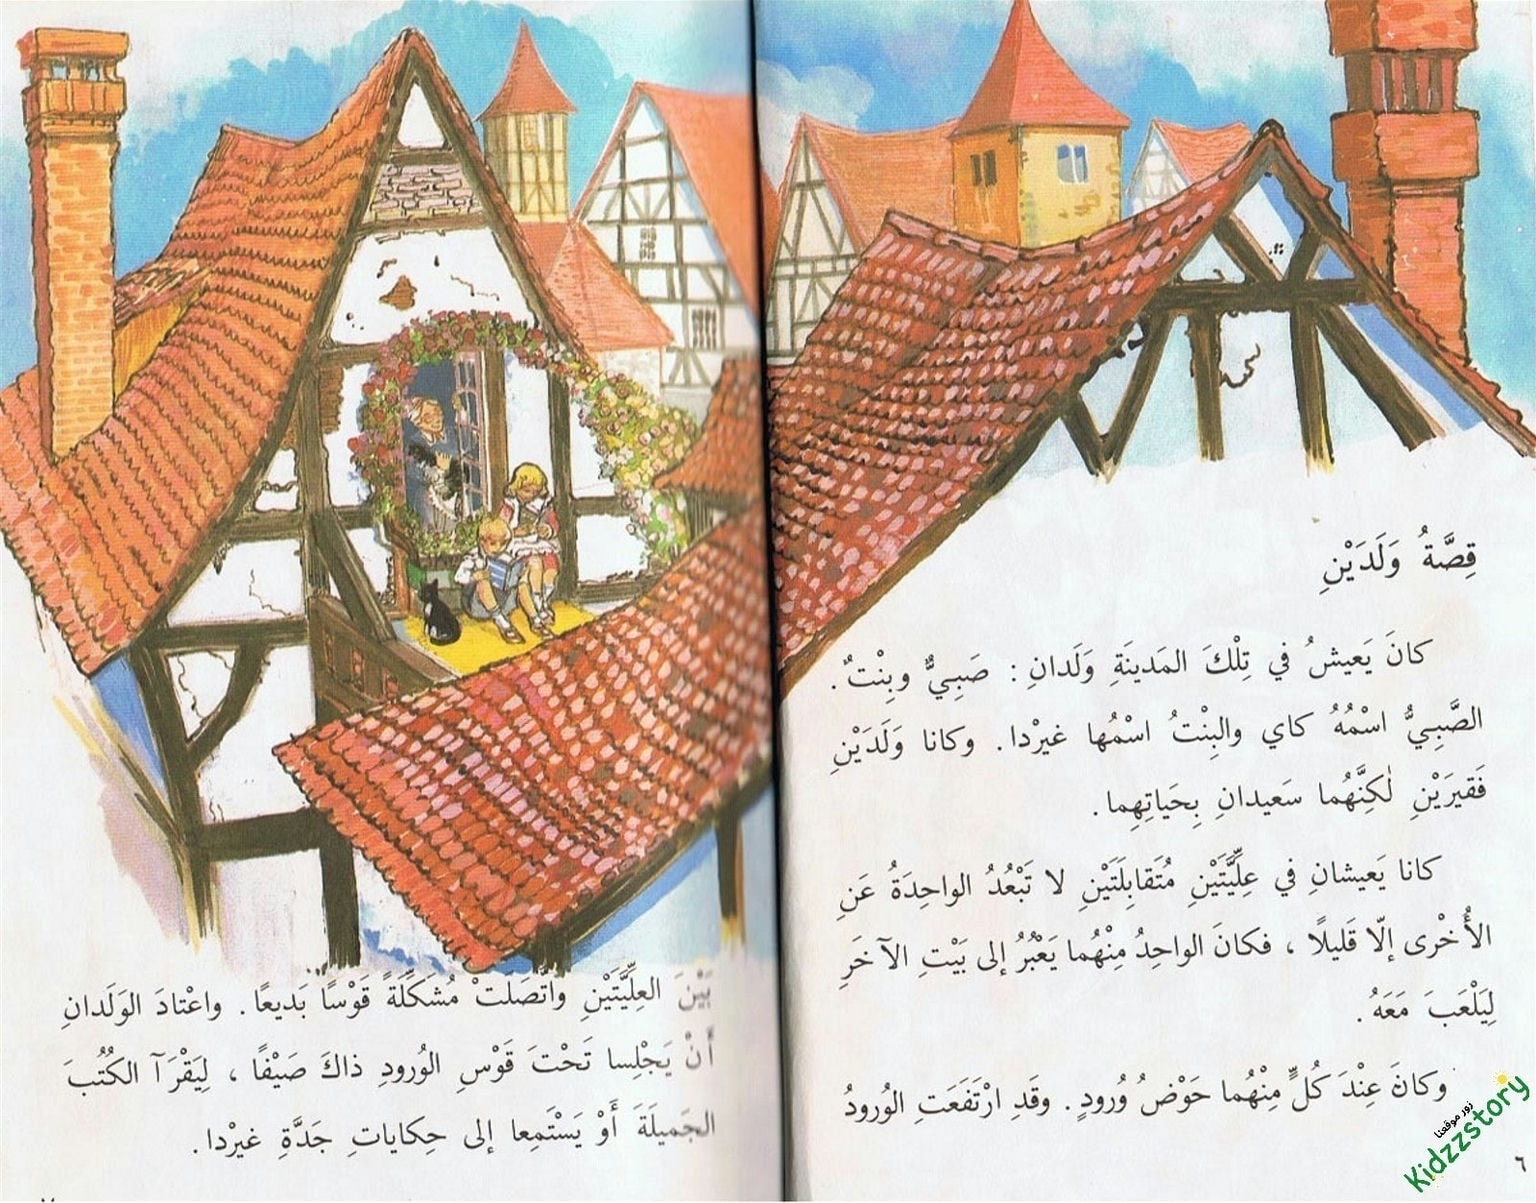 قِصَّةُ وَلَدَيْنِ
كانَ يَعيشُ في تِلْكَ المَدينَةِ وَلَدانِ : صَبِيٌّ وبِنْتٌ .
الصَّبِيُّ اسْمُهُ كاي والبِنْتُ اسْمُها غيرْدا . وكانا وَلَدَيْنِ
فَقيرَيْنِ لٰكِنَّهُما سَعيدانِ بِحَياتِهِما .
كانا يَعيشانِ في عِلِّيَّتَيْنِ مُتَقابِلَتَيْنِ لا تَبْعُدُ الواحِدَةُ عَنِ
الأُخْرى إلّا قَليلًا ، فكانَ الواحِدُ مِنْهُما يَعْبُرُ إلى بَيْتِ الآخَرِ
لِيَلْعَبَ مَعَهُ .
وكانَ عِنْدَ كُلٍّ مِنْهُما حَوْضُ وُرودٍ . وقَدِ ارْتَفَعَتِ الوُرودُ
٦
زور موقعنا
Kidzzstory
بَيْنَ العِلِّيَّتَيْنِ واتَّصَلَتْ مُشَكِّلَةً قَوْسًا بَديعًا . واعْتادَ الوَلَدانِ
أَنْ يَجْلِسا تَحْتَ قَوْسِ الوُرودِ ذاكَ صَيْفًا ، لِيَقْرَآ الكُتُبَ
الجَميلَةَ أَوْ يَسْتَمِعا إلى حِكاياتِ جَدَّةِ غيرْدا .